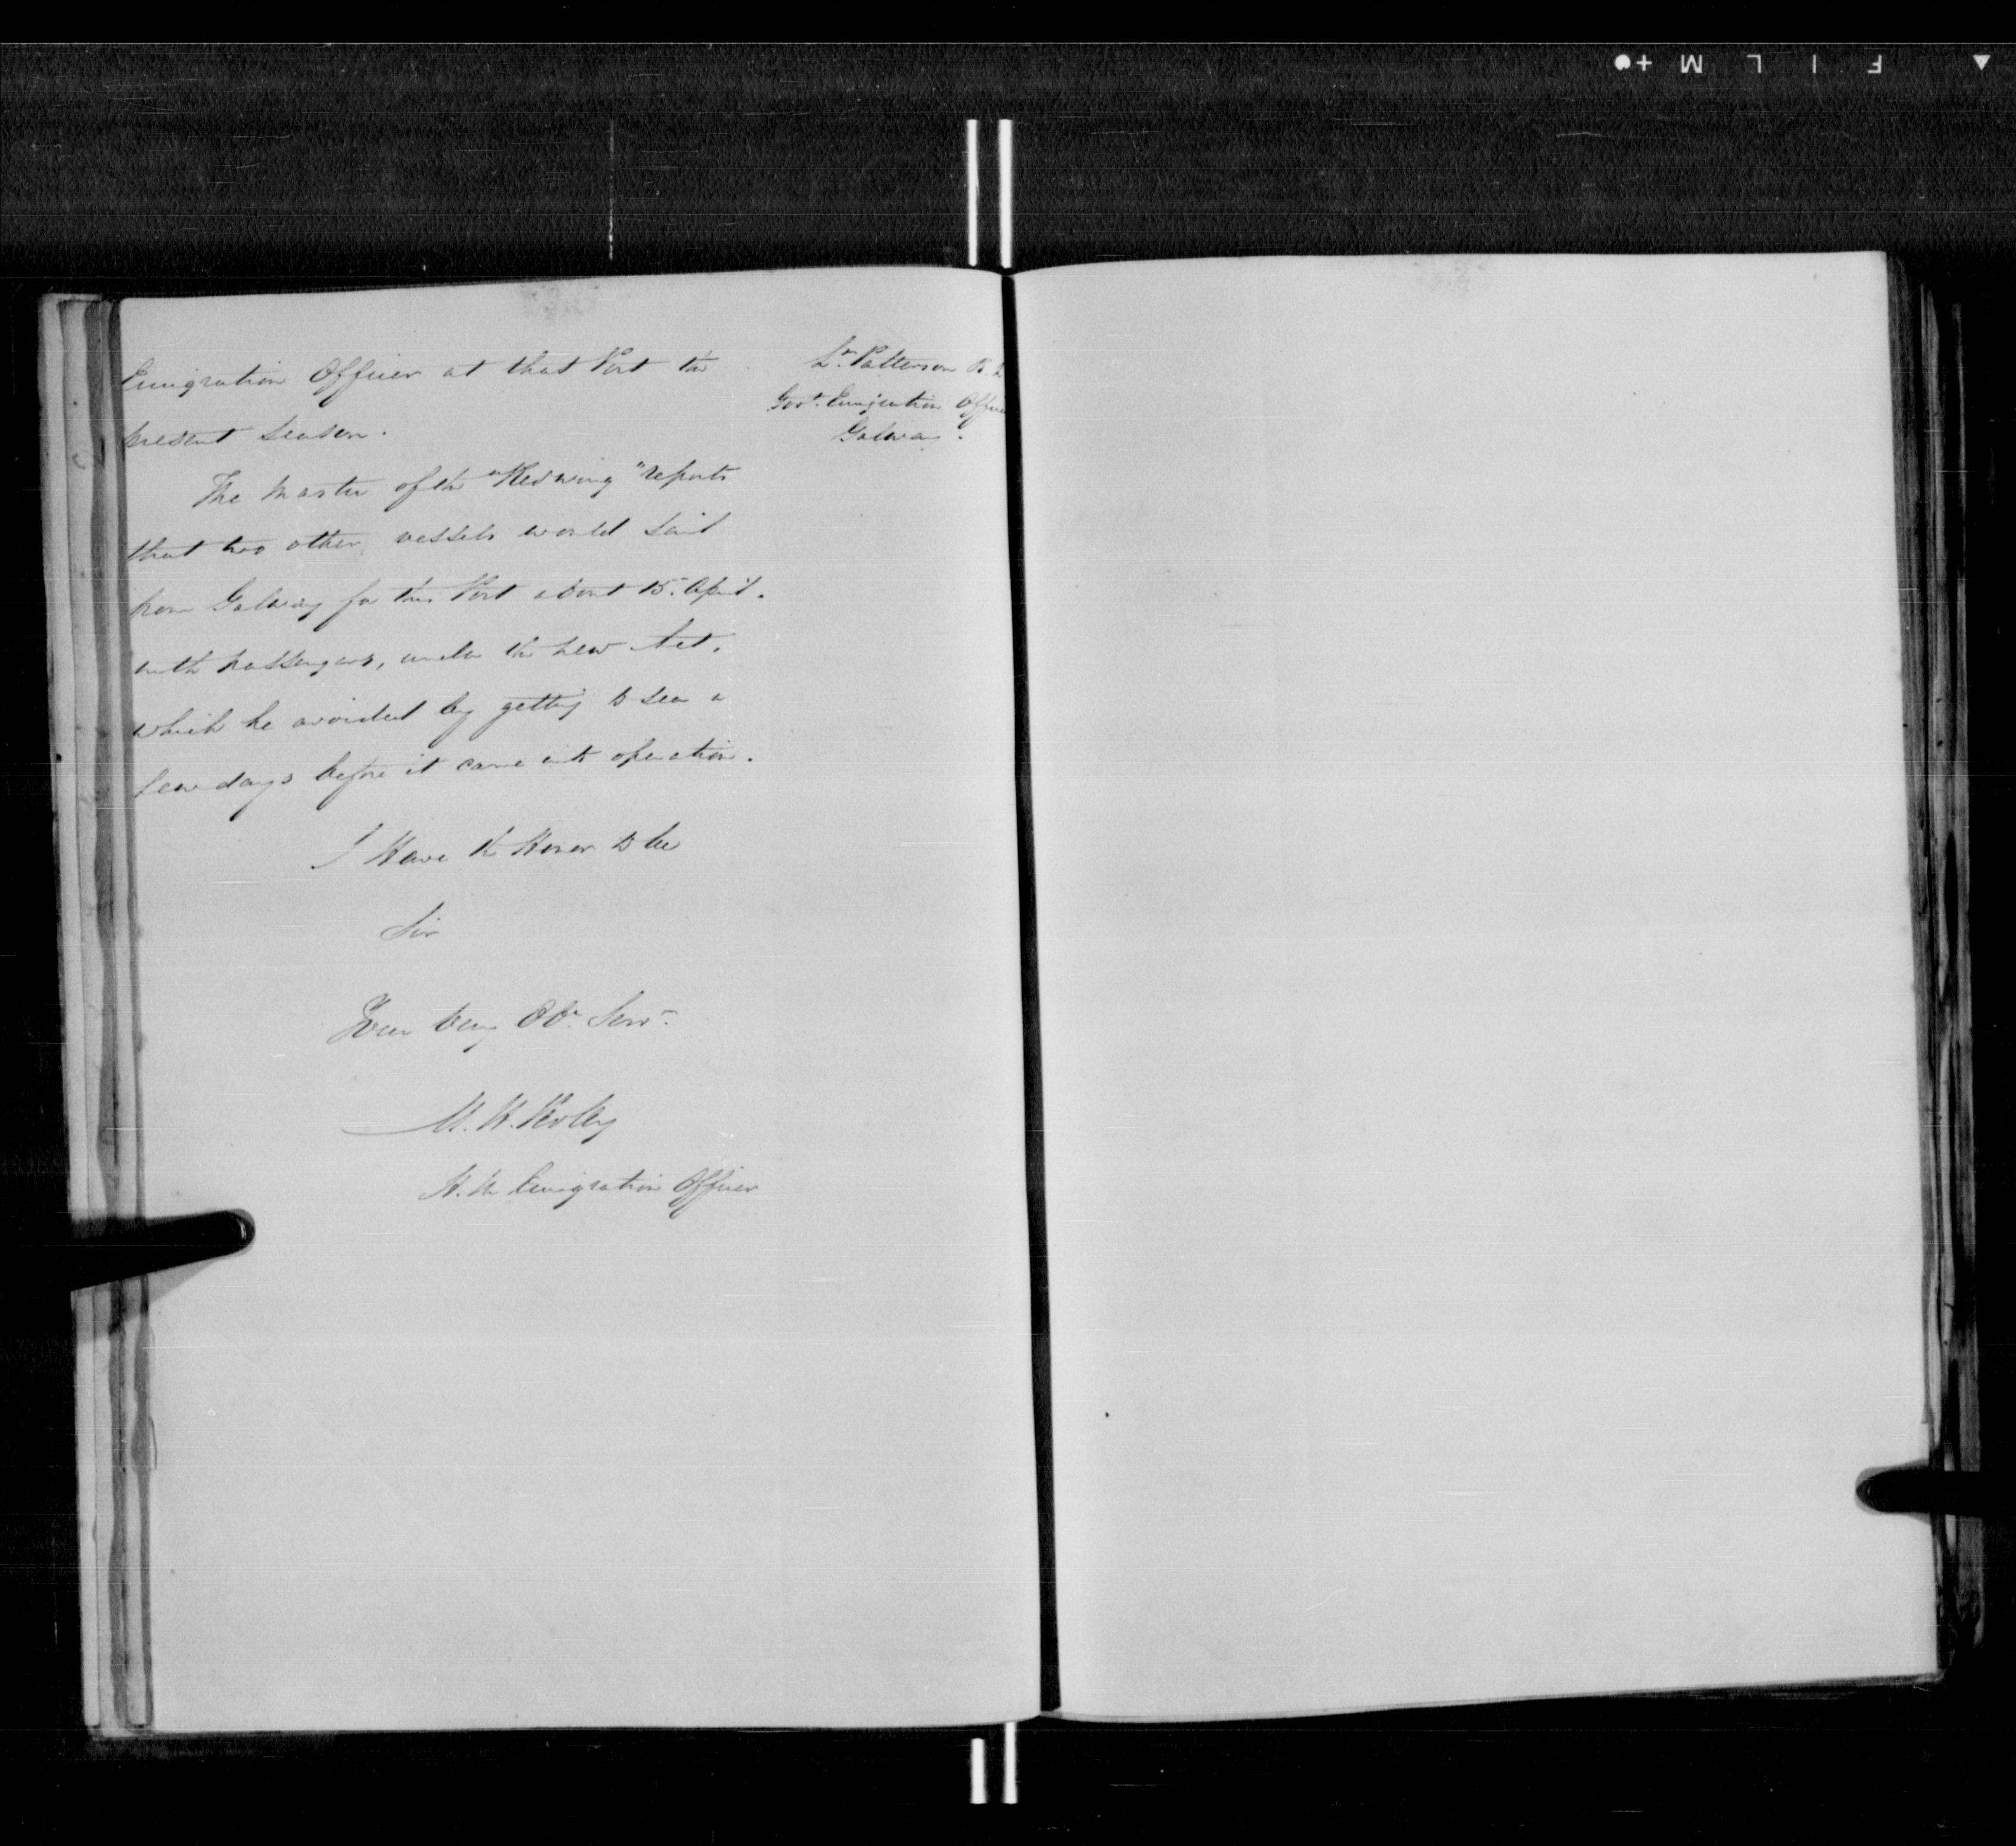 Emigration Officer at that Port the
present season.
The Master of the "Redwing" reports
that two other vessels would sail
from Galway for this Port about 15. April.
with passengers, under the new Act,
which he avoided by getting to sea a
few days before it came into operation.
I Have the Honor to be
Sir
Your Very Obt. Servt.
M. H. Perley
H. M. Emigration Officer
Lt. Patterson R.
Govt. Emigration Office
Galway.
F I L M